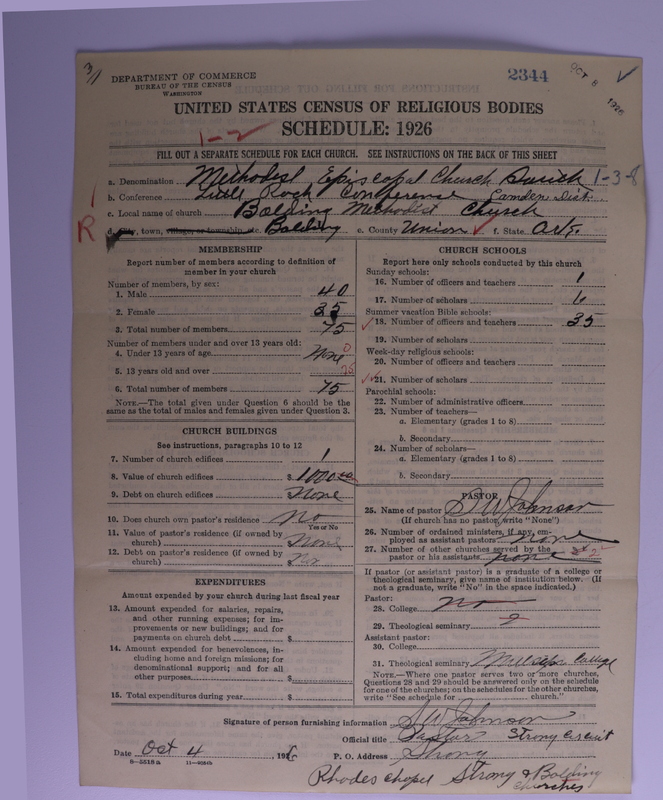 3/1
DEPARTMENT OF COMMERCE
BUREAU OF THE CENSUS
WASHINGTON
2344
OCT 8 1926
UNITED STATES CENSUS OF RELIGIOUS BODIES
1-2
SCHEDULE: 1926
FILL OUT A SEPARATE SCHEDULE FOR EACH CHURCH. SEE INSTRUCTIONS ON THE BACK OF THIS SHEET
a. Denomination Methodist Episcopal Church South 1-3-8
b. Conference Little Rock Conference Camden Dist.
c. Local name of church Bolding Methodist Church
R
d. City, town, village, or township, etc. Bolding e. County Union f. State Ark.
MEMBERSHIP
Report number of members according to definition of
member in your church
Number of members, by sex:
1. Male 40
2. Female 35
3. Total number of members 75
Number of members under and over 13 years old:
4. Under 13 years of age None 0
5. 13 years old and over 75
6. Total number of members 75
NOTE.—The total given under Question 6 should be the
same as the total of males and females given under Question 3.
CHURCH BUILDINGS
See instructions, paragraphs 10 to 12
7. Number of church edifices 1
8. Value of church edifices $ 1000.00
9. Debt on church edifices None
10. Does church own pastor's residence No
Yes or No
11. Value of pastor's residence (if owned by
church) None
12. Debt on pastor's residence (if owned by
church) $ No
EXPENDITURES
Amount expended by your church during last fiscal year
13. Amount expended for salaries, repairs,
and other running expenses; for im-
provements or new buildings; and for
payments on church debt $
14. Amount expended for benevolences, in-
cluding home and foreign missions; for
denominational support; and for all
other purposes $
15. Total expenditures during year $
CHURCH SCHOOLS
Report here only schools conducted by this church
Sunday schools:
16. Number of officers and teachers 1
17. Number of scholars 6
Summer vacation Bible schools:
18. Number of officers and teachers 35
19. Number of scholars
Week-day religious schools:
20. Number of officers and teachers
21. Number of scholars
Parochial schools:
22. Number of administrative officers
23. Number of teachers—
a. Elementary (grades 1 to 8)
b. Secondary
24. Number of scholars—
a. Elementary (grades 1 to 8)
b. Secondary
PASTOR
25. Name of pastor S W Johnson
(If church has no pastor, write "None")
26. Number of ordained ministers, if any, em-
ployed as assistant pastors none
27. Number of other churches served by the
pastor or his assistants none
If pastor (or assistant pastor) is a graduate of a college or
theological seminary, give name of institution below. (If
not a graduate, write "No" in the space indicated.)
Pastor:
28. College no
29. Theological seminary
Assistant pastor:
30. College
31. Theological seminary College
NOTE.—Where one pastor serves two or more churches,
Questions 28 and 29 should be answered only on the schedule
for one of the churches; on the schedules for the other churches,
write "See schedule for church."
Signature of person furnishing information S W Johnson
Official title Pastor Strong Circuit
Date Oct 4, 1926 P. O. Address Strong
Rhodes chapel Strong & Bolding
churches